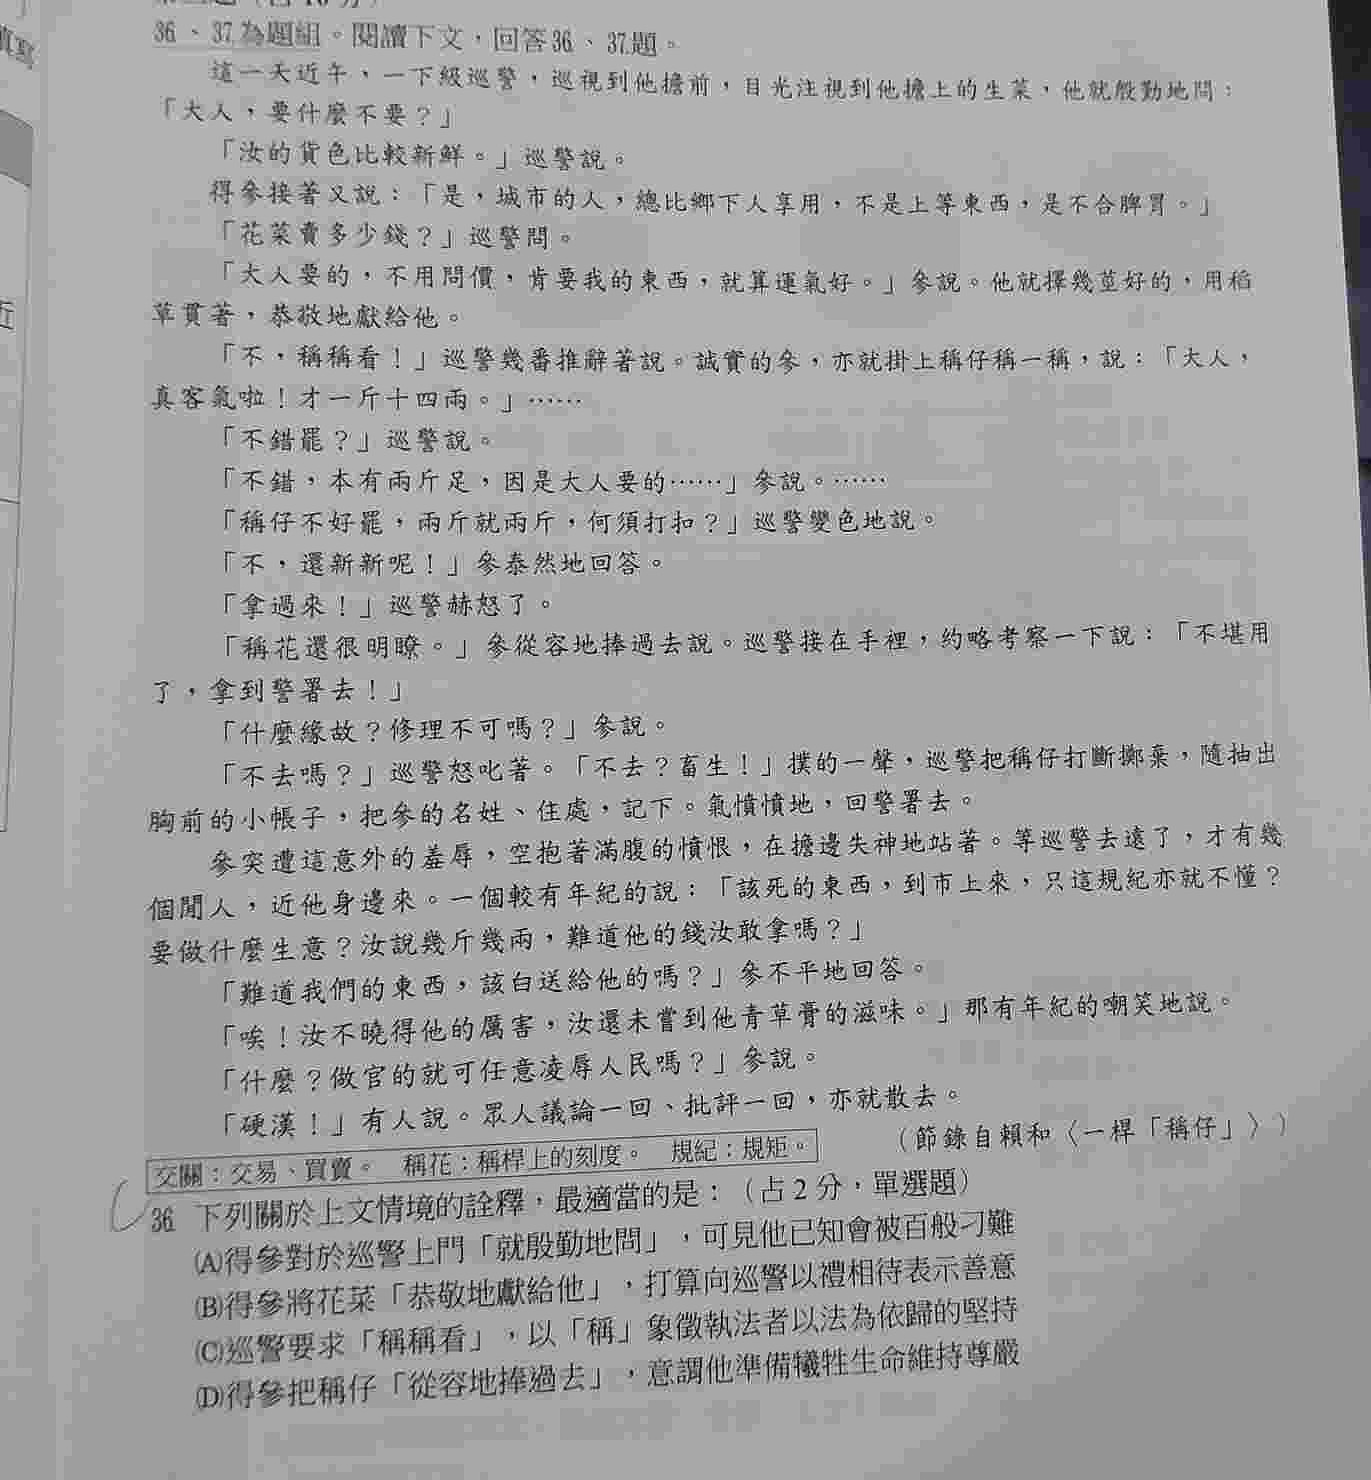 36、37為題組。閱讀下文,回答36、37題。
這一天近午、一下級巡警,巡視到他擔前,目光注視到他擔上的生菜,他就殷勤地問:
「大人,要什麼不要?」
「汝的貨色比較新鮮。」巡警說。
得參接著又說:「是,城市的人,總比鄉下人享用,不是上等東西,是不合脾胃。」
「花菜賣多少錢?」巡警問。
「大人要的,不用問價,肯要我的東西,就算運氣好。」參說。他就擇幾莖好的,用稻
草貫著,恭敬地獻給他。
「不,稱稱看!」巡警幾番推辭著說。誠實的參,亦就掛上稱仔稱一稱,說:「大人,
真客氣啦!才一斤十四兩。」……
「不錯罷?」巡警說。
「不錯,本有兩斤足,因是大人要的……」參說。……
「稱仔不好罷,兩斤就兩斤,何須打扣?」巡警變色地說。
「不,還新新呢!」參泰然地回答。
「拿過來!」巡警赫怒了。
「稱花還很明瞭。」參從容地捧過去說。巡警接在手裡,約略考察一下說:「不堪用
了,拿到警署去!」
「什麼緣故?修理不可嗎?」參說。
「不去嗎?」巡警怒叱著。「不去?畜生!」撲的一聲,巡警把稱仔打斷擲棄,隨抽出
胸前的小帳子,把參的名姓、住處,記下。氣憤憤地,回警署去。
參突遭這意外的羞辱,空抱著滿腹的憤恨,在擔邊失神地站著。等巡警去遠了,才有幾
個閒人,近他身邊來。一個較有年紀的說:「該死的東西,到市上來,只這規紀亦就不懂?
要做什麼生意?汝說幾斤幾兩,難道他的錢汝敢拿嗎?」
「難道我們的東西,該白送給他的嗎?」參不平地回答。
「唉!汝不曉得他的厲害,汝還未嘗到他青草膏的滋味。」那有年紀的嘲笑地說。
「什麼?做官的就可任意凌辱人民嗎?」參說。
「硬漢!」有人說。眾人議論一回、批評一回,亦就散去。
(節錄自賴和〈一桿「稱仔」〉)
交關:交易、買賣。 稱花:稱桿上的刻度。 規紀:規矩。
36 下列關於上文情境的詮釋,最適當的是:(占2分,單選題)
(A)得參對於巡警上門「就殷勤地問」,可見他已知會被百般刁難
(B)得參將花菜「恭敬地獻給他」,打算向巡警以禮相待表示善意
(C)巡警要求「稱稱看」,以「稱」象徵執法者以法為依歸的堅持
(D)得參把稱仔「從容地捧過去」,意謂他準備犧牲生命維持尊嚴